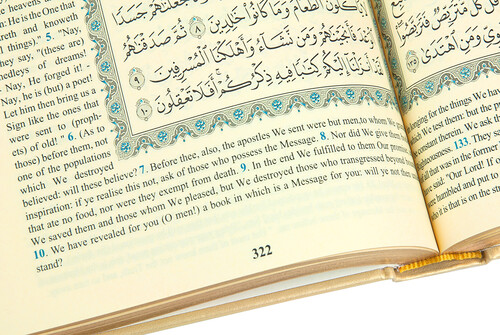 جَعَلْنَٰهُمْ جَسَدًا
ٱلطَّعَامَ وَمَا كَانُوا۟ خَٰلِدِينَ ٨ ثُمَّ صَدَقْنَٰهُمُ
فَأَنجَيْنَٰهُمْ وَمَن نَّشَآءُ وَأَهْلَكْنَا ٱلْمُسْرِفِينَ ٩
أَنزَلْنَآ إِلَيْكُمْ كِتَٰبًا فِيهِ ذِكْرُكُمْ أَفَلَا تَعْقِلُونَ ١٠
heavens
He is the One that
eareth and know
l things)." 5. "Nay,
they say, "(these are)
medleys of dreams!
Nay, He forged it! -
Nay, he is (but) a poet!
Let him then bring us a
Sign like the ones that
were sent to (proph-
ets) of old! " 6. (As to
those) before them, not
one of the populations
which We destroyed
believed: will these believe? 7. Before thee, also, the apostles We sent were but men,to whom We
inspiration: if ye realise this not, ask of those who possess the Message. 8. Nor did We give them
that ate no food, nor were they exempt from death. 9. In the end We fulfilled to them Our
We saved them and those whom We pleased, but We destroyed those who transgressed beyond
10. We have revealed for you (O men!) a book in which is a Message for you: will ye not
stand?
322
وِيِّ وَمَنِ ٱهْتَدَىٰ ١٣٥
longing for the things We ha
We test them: but the
constant therein. We ask th
righteousness. 133. They s
all that was in the former
"Our Lord! If
were humbled and put to
who it is that is on the